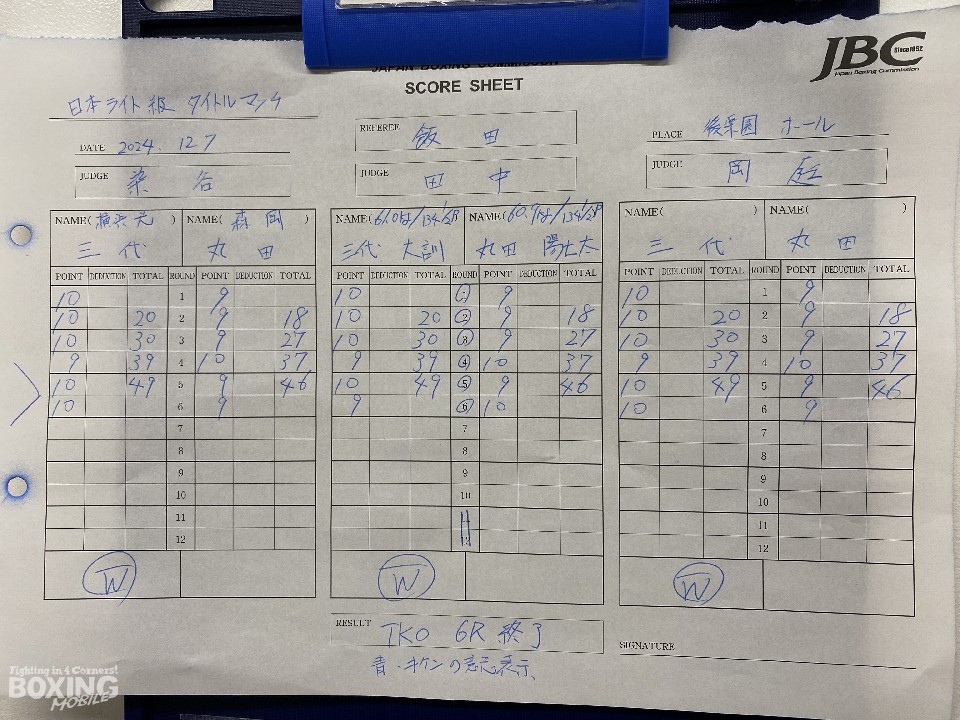 JBC
Since 1952
Japan Boxing Commission
JAPAN BOXING COMMISSION
SCORE SHEET
日本ライト級 タイトルマッチ
DATE 2024. 12 7
REFEREE 飯田
PLACE 後楽園 ホール
JUDGE 染谷
JUDGE 田中
JUDGE 岡庭
NAME( ) NAME( 森岡 )
三代 丸田
POINT DEDUCTION TOTAL ROUND POINT DEDUCTION TOTAL
10 1 9
10 20 2 9 18
10 30 3 9 27
9 39 4 10 37
10 49 5 9 46
10 6 9
7
8
9
10
11
12
W
NAME( 61.0kg/134 1/2P NAME( 60.9kg/134 1/2P
三代 大訓 丸田 陽七太
POINT DEDUCTION TOTAL ROUND POINT DEDUCTION TOTAL
10 1 9
10 20 2 9 18
10 30 3 9 27
9 39 4 10 37
10 49 5 9 46
9 6 10
7
8
9
10
11
12
W
NAME( ) NAME( )
三代 丸田
POINT DEDUCTION TOTAL ROUND POINT DEDUCTION TOTAL
10 1 9
10 20 2 9 18
10 30 3 9 27
9 39 4 10 37
10 49 5 9 46
10 6 9
7
8
9
10
11
12
W
RESULT TKO 6R 終了
青・キケンの意志表示
SIGNATURE
Fighting in 4 Corners!
BOXING
MOBILE